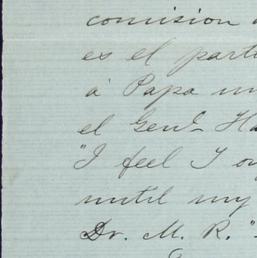 comision
es el
á Papa
el Genl.
"I feel I
until my
Dr. M. R."